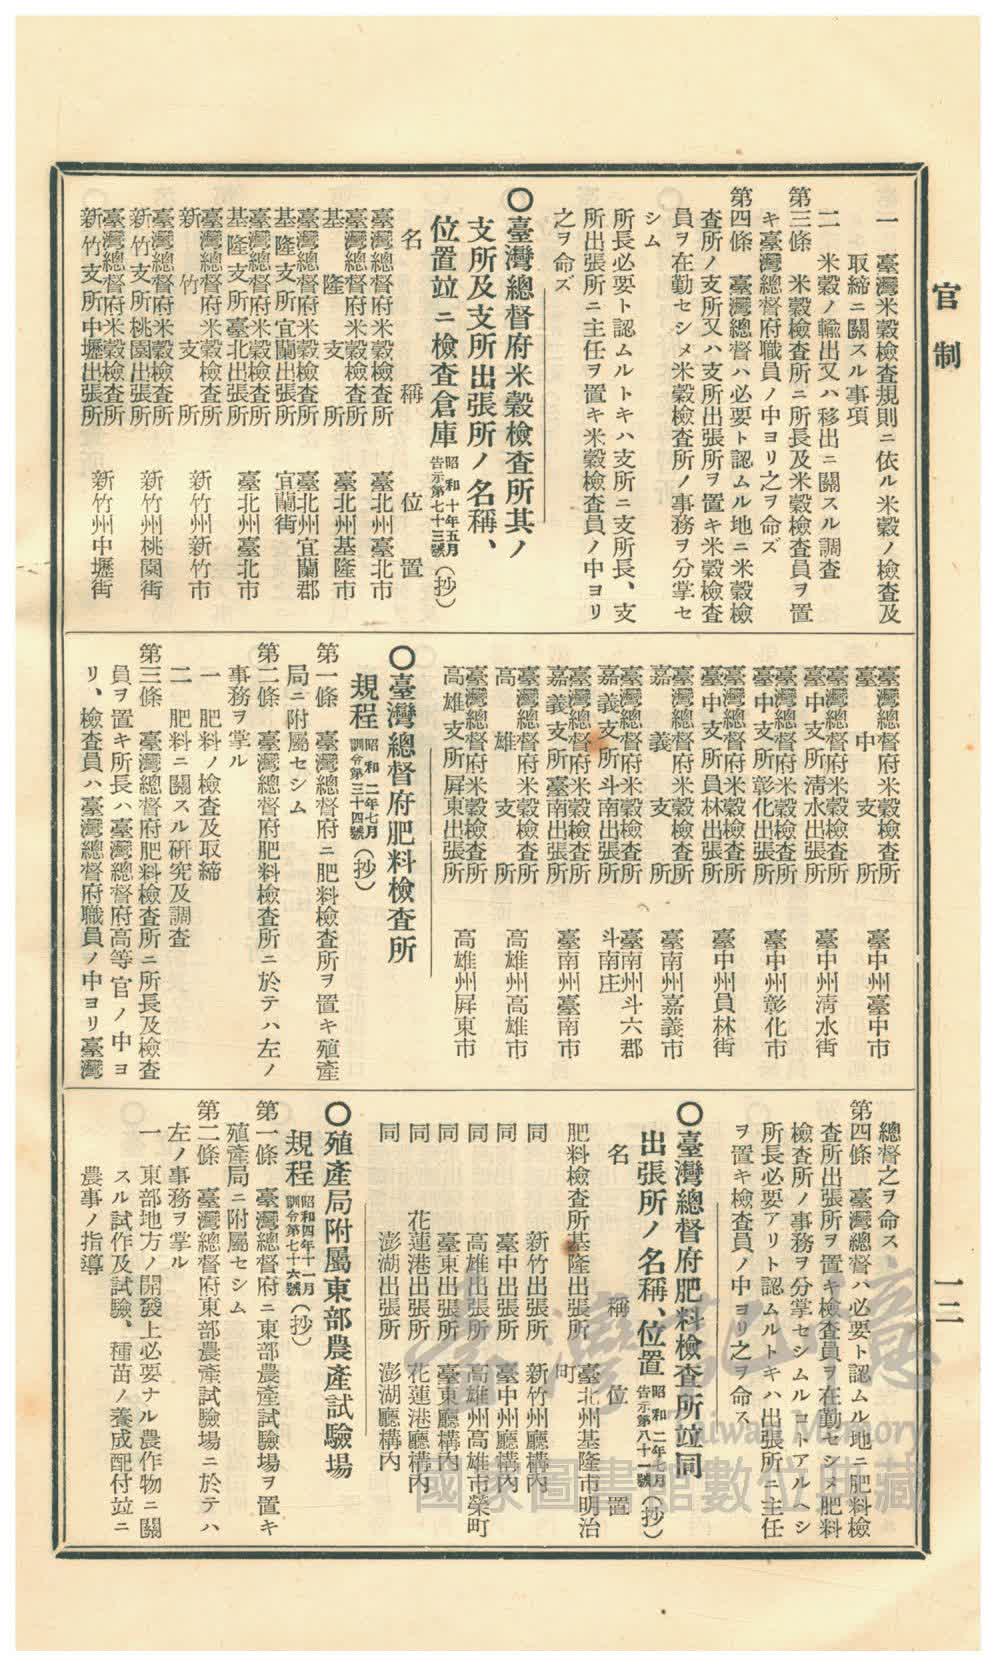 官制
一三
一 臺灣米穀檢查規則ニ依ル米穀ノ檢査及
取締ニ關スル事項
二 米穀ノ輸出又ハ移出ニ關スル調査
第三條 米穀檢査所ニ所長及米穀檢査員ヲ置
キ臺灣總督府職員ノ中ヨリ之ヲ命ズ
第四條 臺灣總督ハ必要ト認ムル地ニ米穀檢
査所ノ支所又ハ支所出張所ヲ置キ米穀檢査
員ヲ在勤セシメ米穀檢査所ノ事務ヲ分掌セ
シム
所長必要ト認ムルトキハ支所ニ支所長、支
所出張所ニ主任ヲ置キ米穀檢査員ノ中ヨリ
之ヲ命ズ
〇臺灣總督府米穀檢査所其ノ
支所及支所出張所ノ名稱、
位置竝ニ檢查倉庫 昭和十年五月 告示第七十三號 (抄)
名稱 位置
臺灣總督府米穀檢査所 臺北州臺北市
臺灣總督府米穀檢査所
基隆支所 臺北州基隆市
臺灣總督府米穀檢査所 臺北州宜蘭郡
基隆支所宜蘭出張所 宜蘭街
臺灣總督府米穀檢査所
基隆支所臺北出張所 臺北州臺北市
臺灣總督府米穀檢査所
新竹支所 新竹州新竹市
臺灣總督府米穀檢査所
新竹支所桃園出張所 新竹州桃園街
臺灣總督府米穀檢査所
新竹支所中壢出張所 新竹州中壢街
臺灣總督府米穀檢査所
臺中支所 臺中州臺中市
臺灣總督府米穀檢査所
臺中支所淸水出張所 臺中州淸水街
臺灣總督府米穀檢査所
臺中支所彰化出張所 臺中州彰化市
臺灣總督府米穀檢査所
臺中支所員林出張所 臺中州員林街
臺灣總督府米穀檢査所
嘉義支所 臺南州嘉義市
臺灣總督府米穀檢査所 臺南州斗六郡
嘉義支所斗南出張所 斗南庄
臺灣總督府米穀檢査所
嘉義支所臺南出張所 臺南州臺南市
臺灣總督府米穀檢査所
高雄支所 高雄州高雄市
臺灣總督府米穀檢査所
高雄支所屛東出張所 高雄州屛東市
〇臺灣總督府肥料檢査所
規程 昭和二年七月 訓令第三十四號 (抄)
第一條 臺灣總督府ニ肥料檢査所ヲ置キ殖產
局ニ附屬セシム
第二條 臺灣總督府肥料檢査所ニ於テハ左ノ
事務ヲ掌ル
一 肥料ノ檢査及取締
二 肥料ニ關スル硏究及調査
第三條 臺灣總督府肥料檢査所ニ所長及檢査
員ヲ置キ所長ハ臺灣總督府高等官ノ中ヨ
リ、檢査員ハ臺灣總督府職員ノ中ヨリ臺灣
總督之ヲ命ス
第四條 臺灣總督ハ必要ト認ムル地ニ肥料檢
査所出張所ヲ置キ檢査員ヲ在勤セシメ肥料
檢査所ノ事務ヲ分掌セシムルコトアルヘシ
所長必要アリト認ムルトキハ出張所ニ主任
ヲ置キ檢査員ノ中ヨリ之ヲ命ス
〇臺灣總督府肥料檢査所竝同
出張所ノ名稱、位置 昭和二年七月 告示第八十一號 (抄)
名稱 位置
肥料檢査所基隆出張所 臺北州基隆市明治
町
同 新竹出張所 新竹州廳構內
同 臺中出張所 臺中州廳構內
同 高雄出張所 高雄州高雄市榮町
同 臺東出張所 臺東廳構內
同 花蓮港出張所 花蓮港廳構內
同 澎湖出張所 澎湖廳構內
〇殖產局附屬東部農產試驗場
規程 昭和四年十一月 訓令第七十六號 (抄)
第一條 臺灣總督府ニ東部農產試驗場ヲ置キ
殖產局ニ附屬セシム
第二條 臺灣總督府東部農產試驗場ニ於テハ
左ノ事務ヲ掌ル
一 東部地方ノ開發上必要ナル農作物ニ關
スル試作及試驗、種苗ノ養成配付竝ニ
農事ノ指導
臺灣記憶
Taiwan Memory
國家圖書館數位典藏